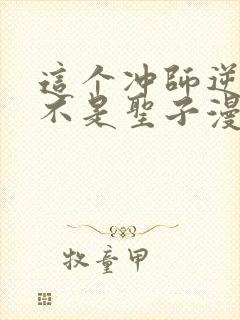 這个冲師逆
不是聖子漫
牧童甲